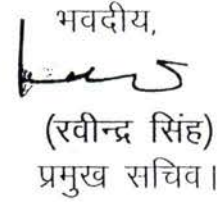 भवदीय,
(रवीन्द्र सिंह)
प्रमुख सचिव।